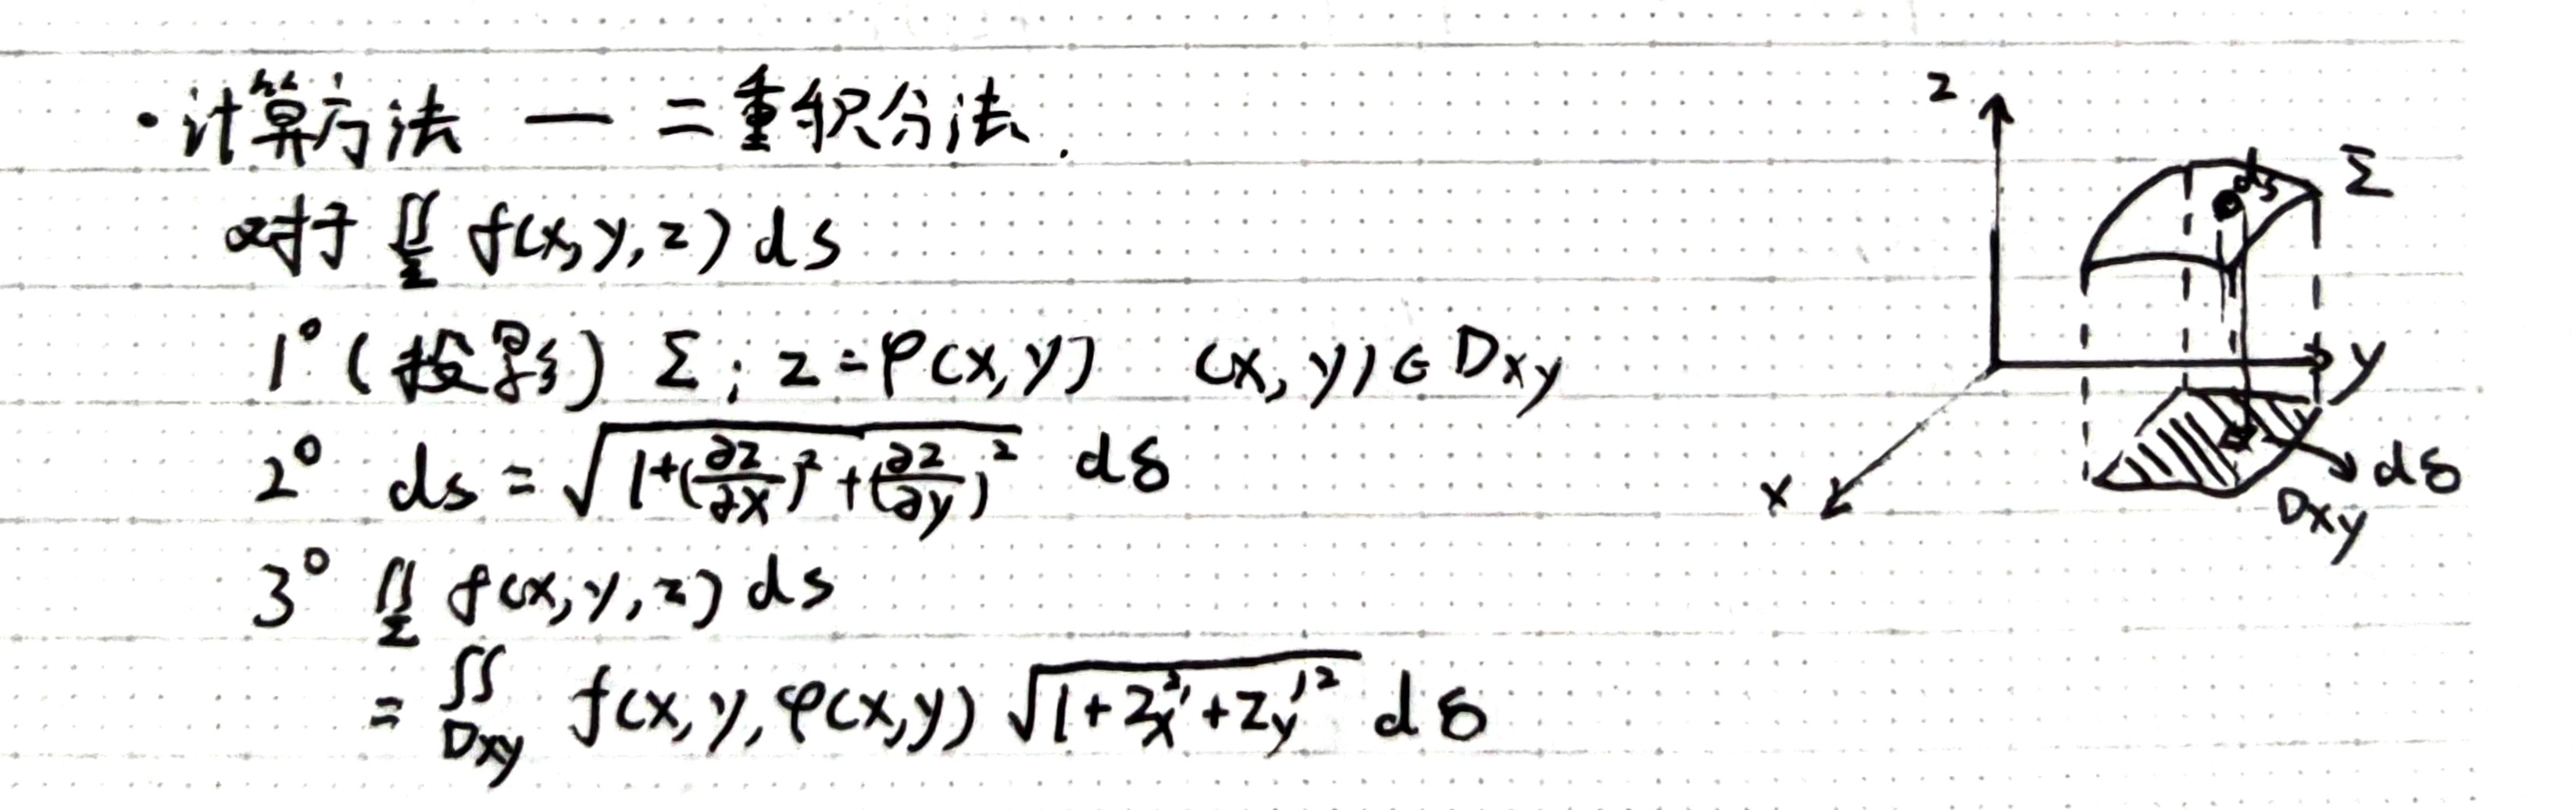 ·计算方法 — 二重积分法.
对于 ∬_Σ f(x,y,z) ds
1° (投影) Σ: z=φ(x,y) (x,y)∈Dxy
2° ds = √(1+(∂z/∂x)²+(∂z/∂y)²) dδ
3° ∬_Σ f(x,y,z) ds
= ∬_Dxy f(x,y,φ(x,y)) √(1+z'x²+z'y²) dδ
z
ds
Σ
y
x
dδ
Dxy